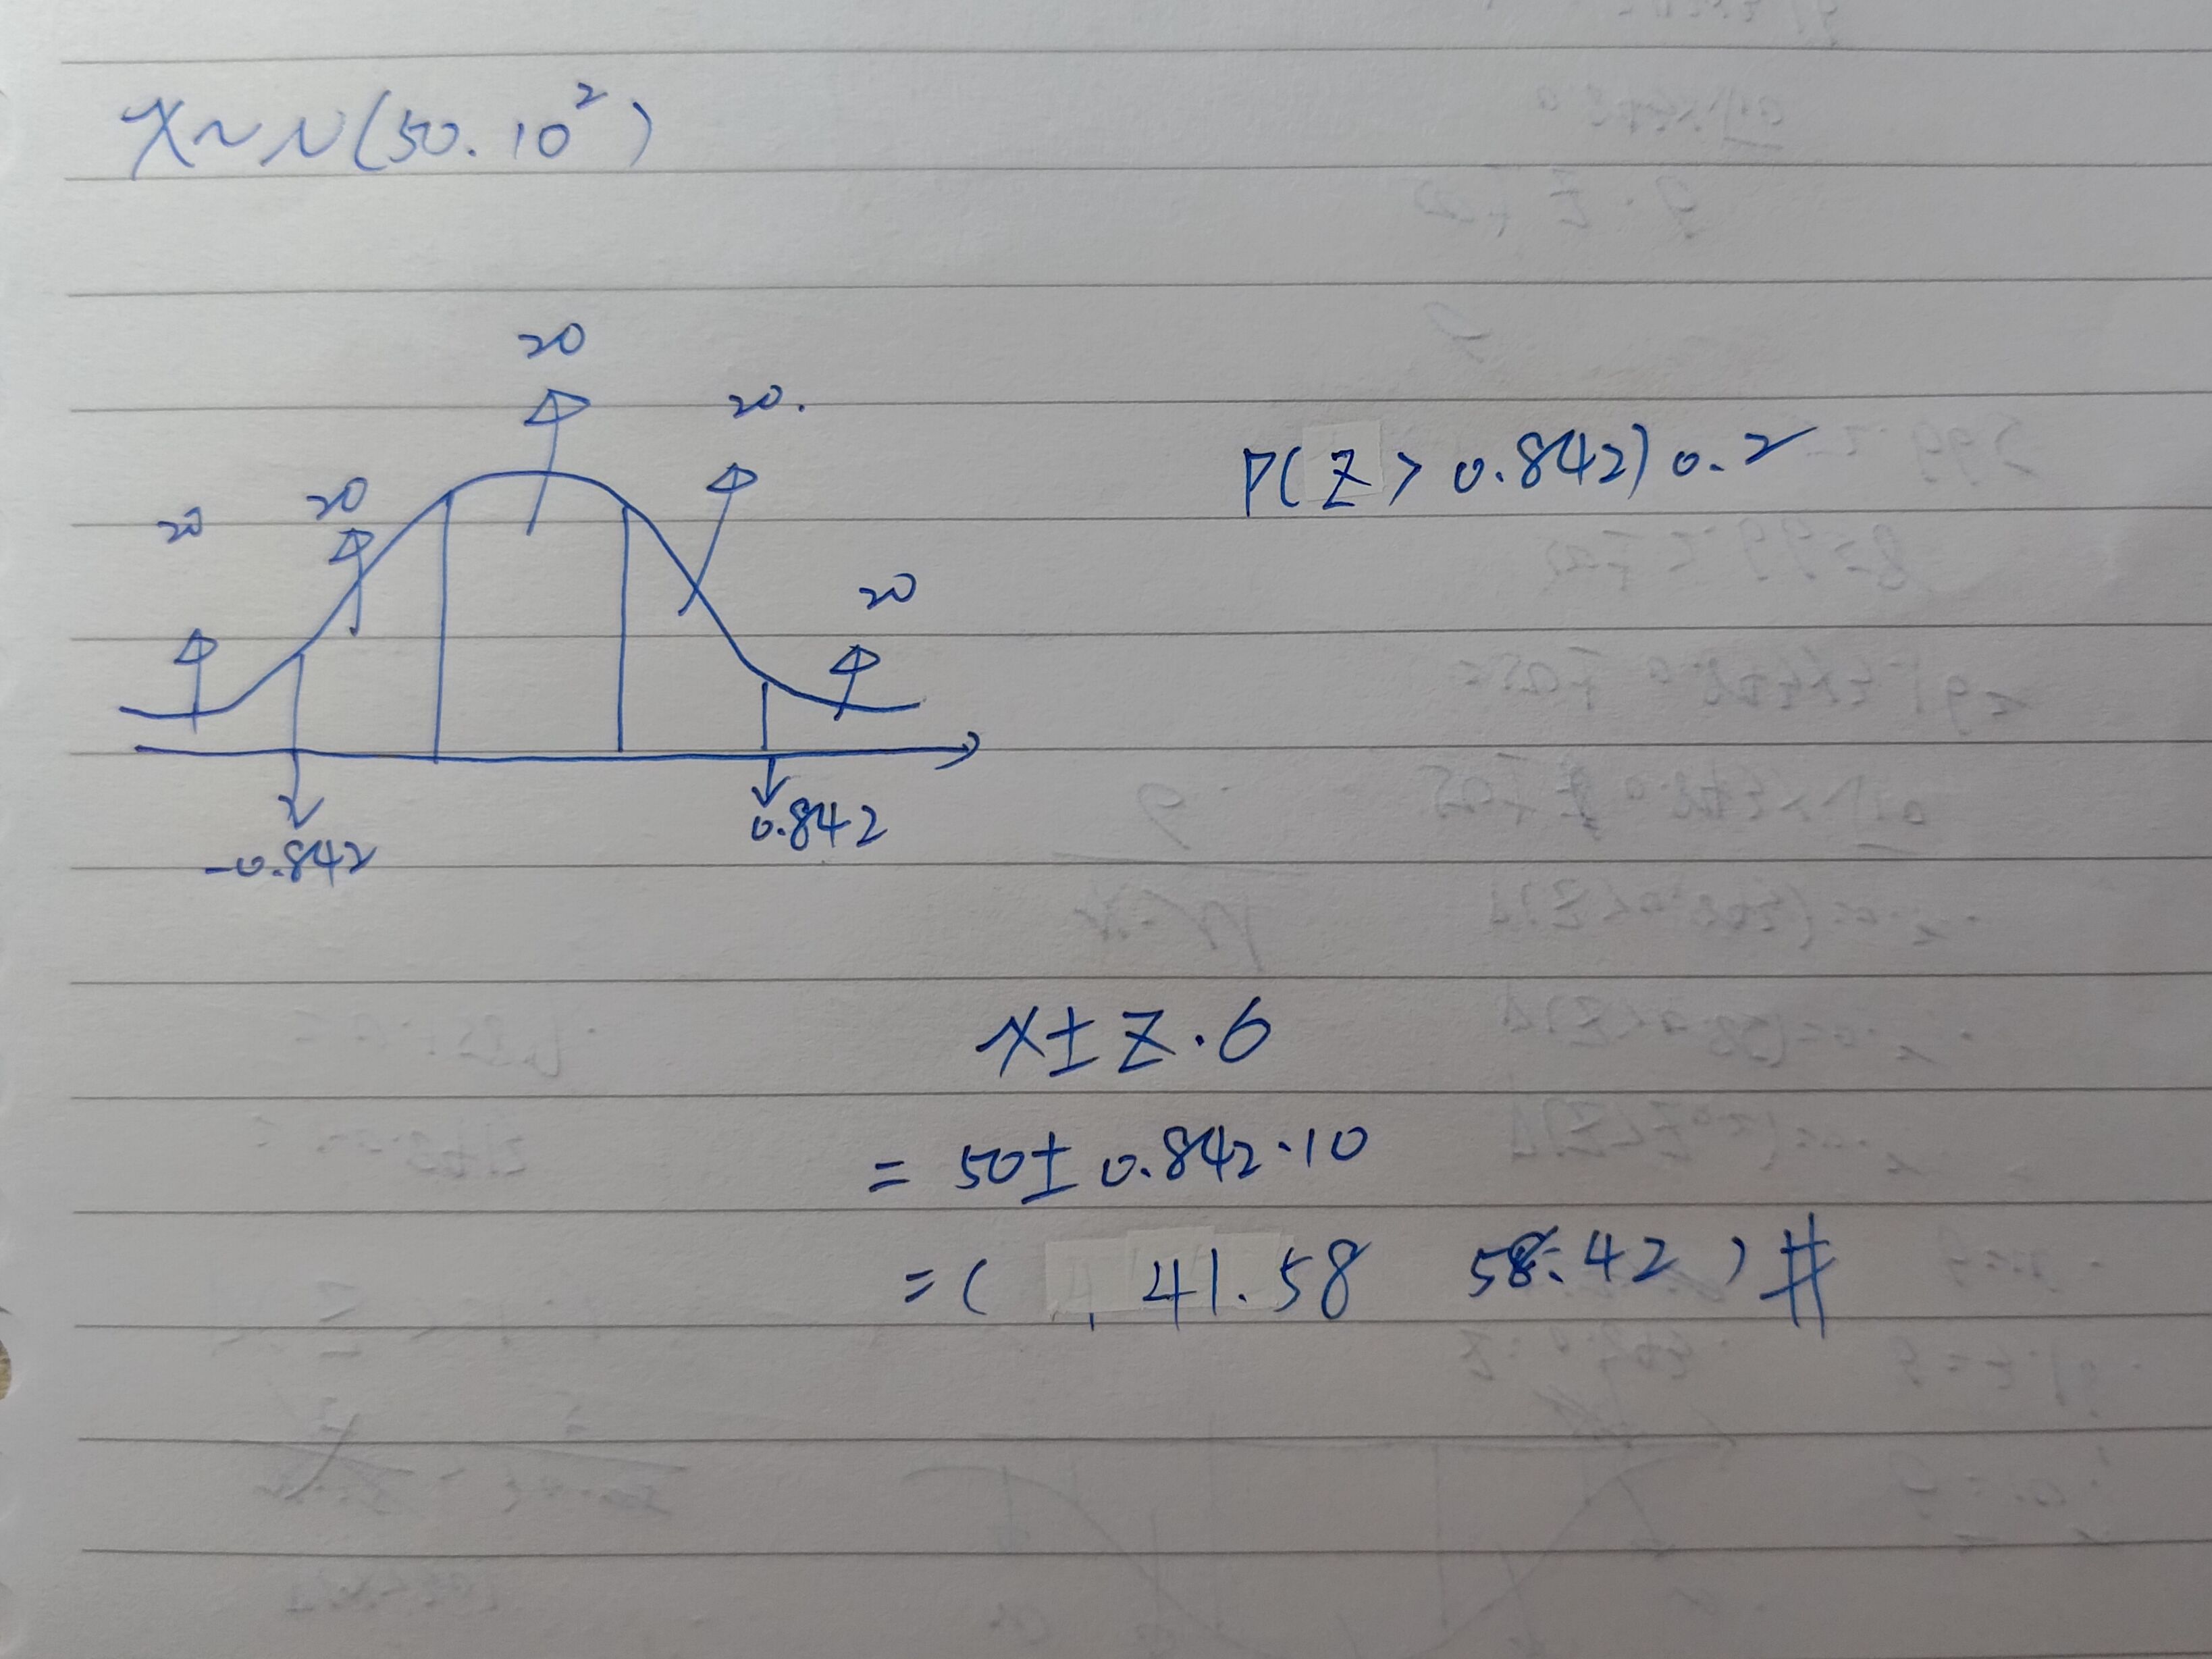 X~N(50.10²)
20
20.
20
20
20
P(Z > 0.842) 0.2
-0.842
0.842
x±Z.6
= 50± 0.842.10
=( 41.58 58.42 ) #